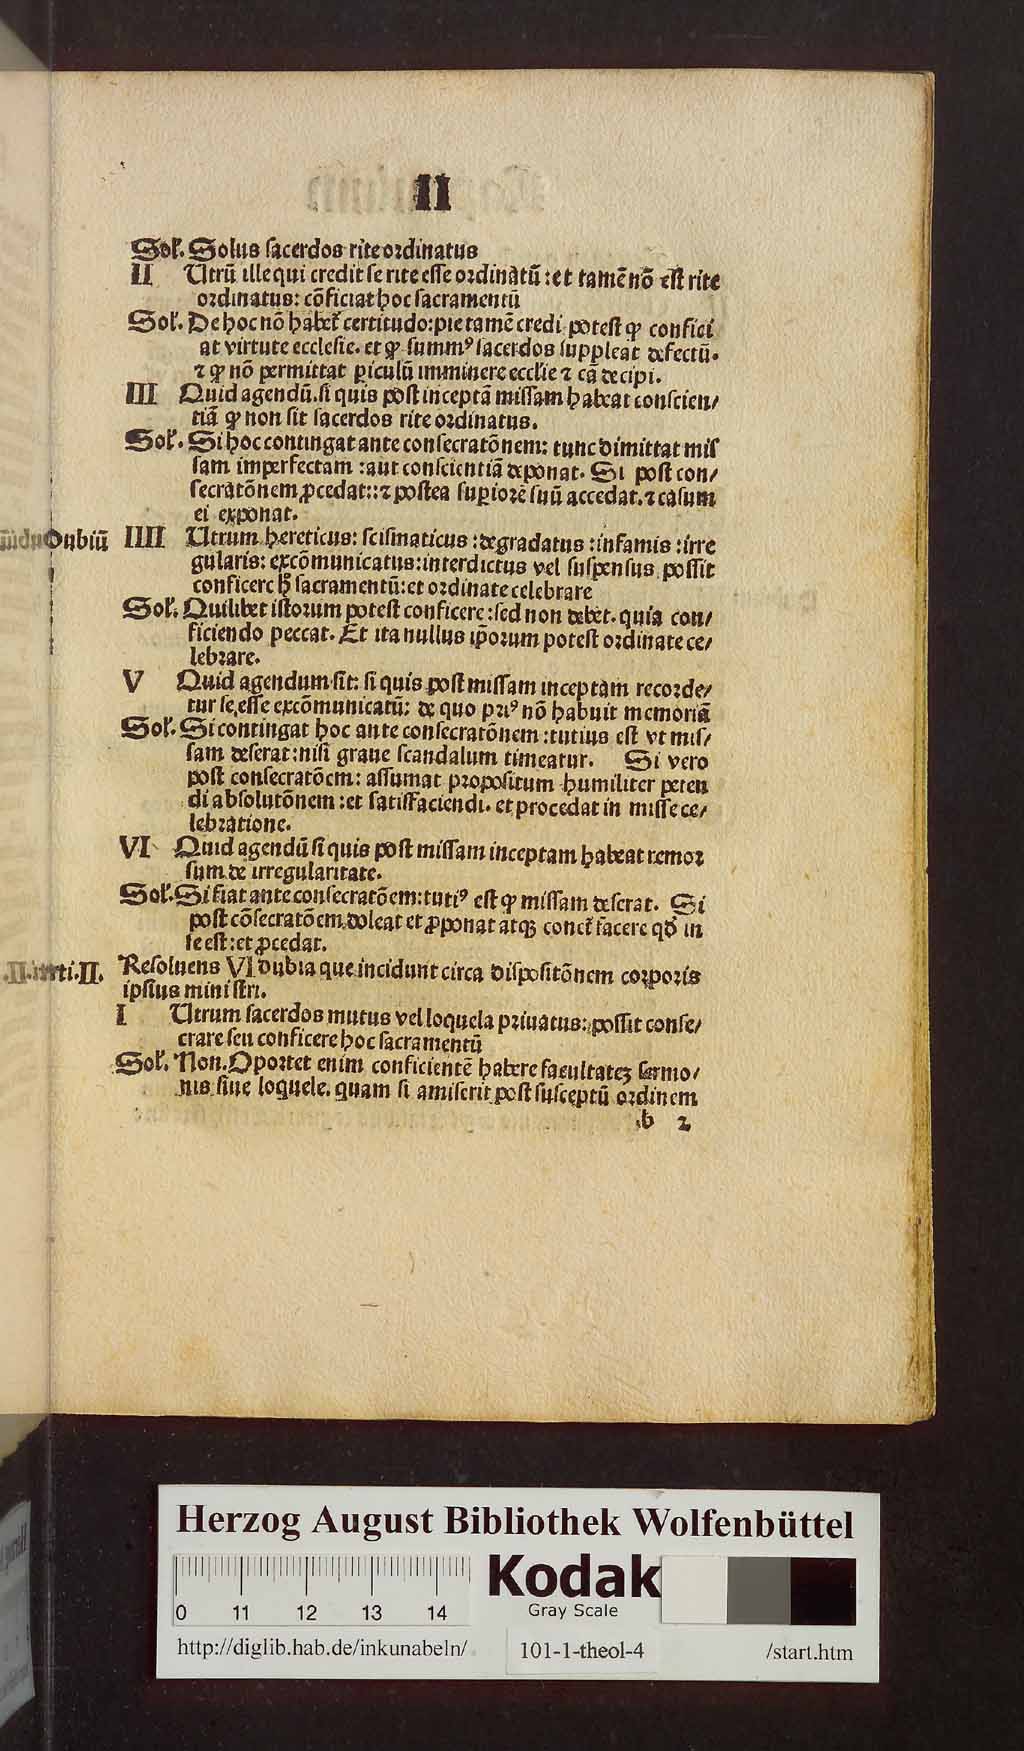 II
Sol̄. Solus sacerdos rite ordinatus
II Utrū ille qui credit se rite esse ordinatū : et tamē nō est rite
ordinatus: cōficiat hoc sacramentū
Sol̄. De hoc nō habet̄ certitudo: pie tamē credi potest ꝙ confici
at virtute ecclesie. et ꝙ summꝰ sacerdos suppleat defectū.
⁊ ꝙ nō permittat ꝑiculū imminere eccl̄ie ⁊ eā decipi.
III Quid agendū. si quis post inceptā missam habeat conscien/
tiā ꝙ non sit sacerdos rite ordinatus.
Sol̄. Si hoc contingat ante consecratōnem: tunc dimittat mis
sam imperfectam : aut conscientiā deponat. Si post con/
secratōnem ꝓcedat: : ⁊ postea suꝑiorē suū accedat. ⁊ casum
ei exponat.
Dubiū IIII Utrum hereticus: scismaticus : degradatus : infamis : irre
gularis: excōmunicatus: interdictus vel suspensus possit
conficere hꝫ sacramentū: et ordinate celebrare
Sol̄. Quilibet istorum potest conficere : sed non debet. quia con/
ficiendo peccat. Et ita nullus ip̄orum potest ordinate ce/
lebrare.
V Quid agendum sit: si quis post missam inceptam recorde/
tur se esse excōmunicatū: de quo priꝰ nō habuit memoriā
Sol̄. Si contingat hoc ante consecratōnem : tutius est vt mis/
sam deserat: nisi graue scandalum timeatur. Si vero
post consecratōem: assumat propositum humiliter peten
di absolutōnem : et satisfaciendi. et procedat in misse ce/
lebratione.
VI Quid agendū si quis post missam inceptam habeat remor
sum de irregularitate.
Sol̄. Si fiat ante consecratōem: tutiꝰ est ꝙ missam deserat. Si
post cōsecratōem doleat et ꝓponat atqꝫ conet̄ facere qđ in
se est: et ꝓcedat.
.II. Resoluens VI dubia que incidunt circa dispositōnem corporis
ipsius ministri.
I Utrum sacerdos mutus vel loquela priuatus: possit conse/
crare seu conficere hoc sacramentū
Sol̄. Non. Oportet enim conficientē habere facultateꝫ sermo/
nis siue loquele. quam si amiserit post susceptū ordinem
b 2
Herzog August Bibliothek Wolfenbüttel
Kodak
Gray Scale
0 11 12 13 14
http://diglib.hab.de/inkunabeln/ 101-1-theol-4 /start.htm